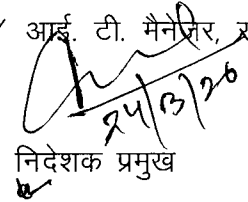 आई. टी. मैनेजर,
24/3/26
निदेशक प्रमुख